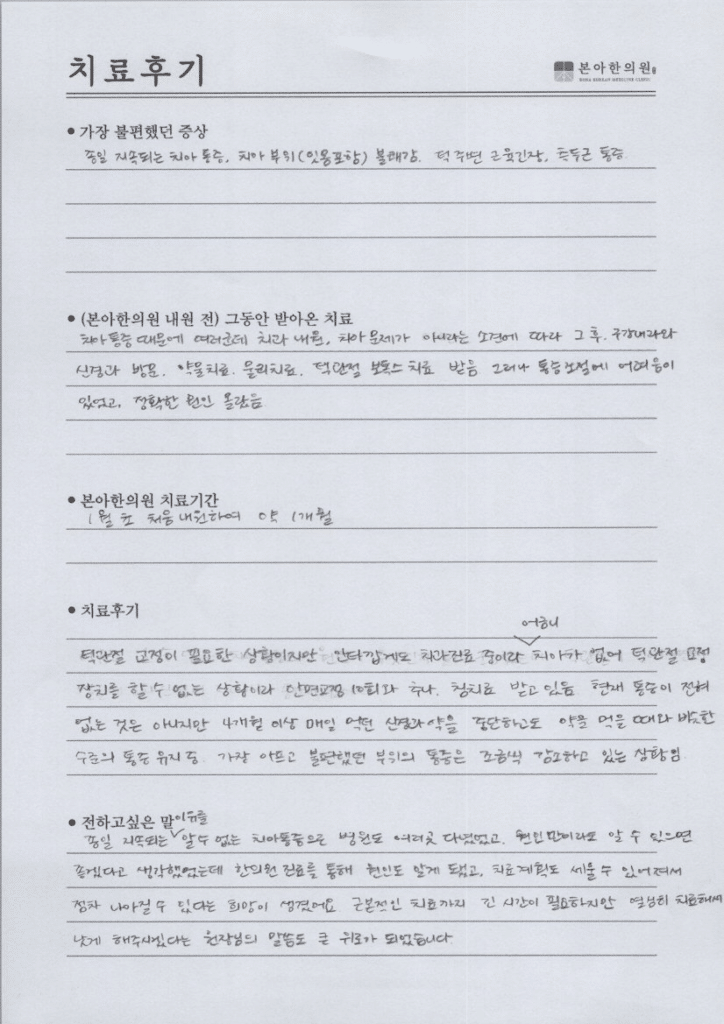 치료후기
본아한의원
BONA KOREAN MEDICINE CLINIC
● 가장 불편했던 증상
종일 지속되는 치아통증, 치아부위(잇몸포함) 불쾌감. 턱 주변 근육긴장, 측두근 통증
● (본아한의원 내원 전) 그동안 받아온 치료
치아통증때문에 여러군데 치과내원, 치아문제가 아니라는 소견에 따라 그 후. 구강내과와
신경과 방문. 약물치료. 물리치료. 턱관절 보톡스치료 받음 그러나 통증조절에 어려움이
있었고, 정확한 원인 몰랐음
● 본아한의원 치료기간
1월 초 처음내원하여 약 1개월
● 치료후기
어금니
턱관절 교정이 필요한 상황이지만 안타깝게도 치과진료 중이라 치아가 없어 턱관절 교정
장치를 할 수 없는 상황이라 안면교정 10회와 추나, 침치료 받고있음 현재 통증이 전혀
없는 것은 아니지만 4개월 이상 매일 먹던 신경과약을 중단하고도 약을 먹을 때와 비슷한
수준의 통증 유지중. 가장 아프고 불편했던 부위의 통증은 조금씩 감소하고 있는 상황임
● 전하고싶은 말
이유를
종일 지속되는 알 수 없는 치아통증으로 병원도 여러곳 다녔었고, 원인만이라도 알 수 있으면
좋겠다고 생각했었는데 한의원 진료를 통해 원인도 알게 됐고, 치료계획도 세울 수 있어져서
점차 나아질 수 있다는 희망이 생겼어요. 근본적인 치료까지 긴 시간이 필요하지만 열심히 치료해서
낫게 해주시겠다는 원장님의 말씀도 큰 위로가 되었습니다.